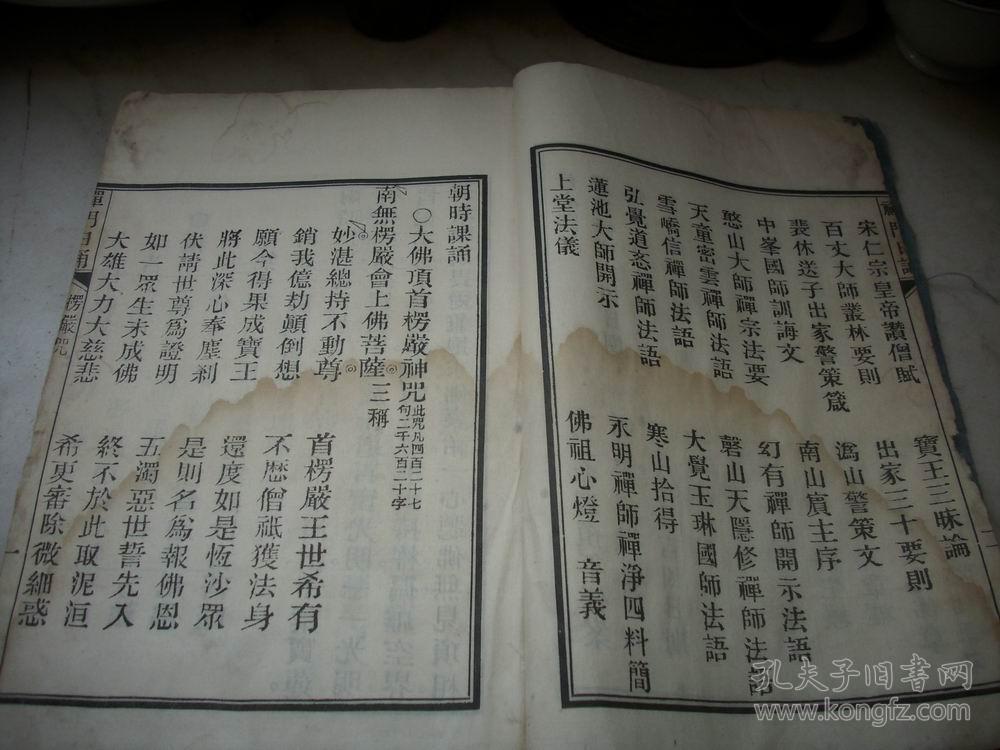 禪門日誦
二
宋仁宗皇帝讚僧賦 寶王三昧論
百丈大師叢林要則 出家三十要則
裴休送子出家警策箴 溈山警策文
中峯國師訓誨文 南山賓主序
憨山大師禪宗法要 幻有禪師開示法語
天童密雲禪師法語 磬山天隱修禪師法語
雪嶠信禪師法語 大覺玉琳國師法語
弘覺道忞禪師法語 寒山拾得
蓮池大師開示 永明禪師禪淨四料簡
上堂法儀 佛祖心燈 音義
朝時課誦
○大佛頂首楞嚴神咒 此咒凡四百二十七句二千六百二十字
南無楞嚴會上佛菩薩 三稱
妙湛總持不動尊 首楞嚴王世希有
銷我億劫顛倒想 不歷僧祇獲法身
願今得果成寶王 還度如是恆沙眾
將此深心奉塵剎 是則名為報佛恩
伏請世尊為證明 五濁惡世誓先入
如一眾生未成佛 終不於此取泥洹
大雄大力大慈悲 希更審除微細惑
禪門日誦
楞嚴咒
一
孔夫子旧書网
www.kongfz.com